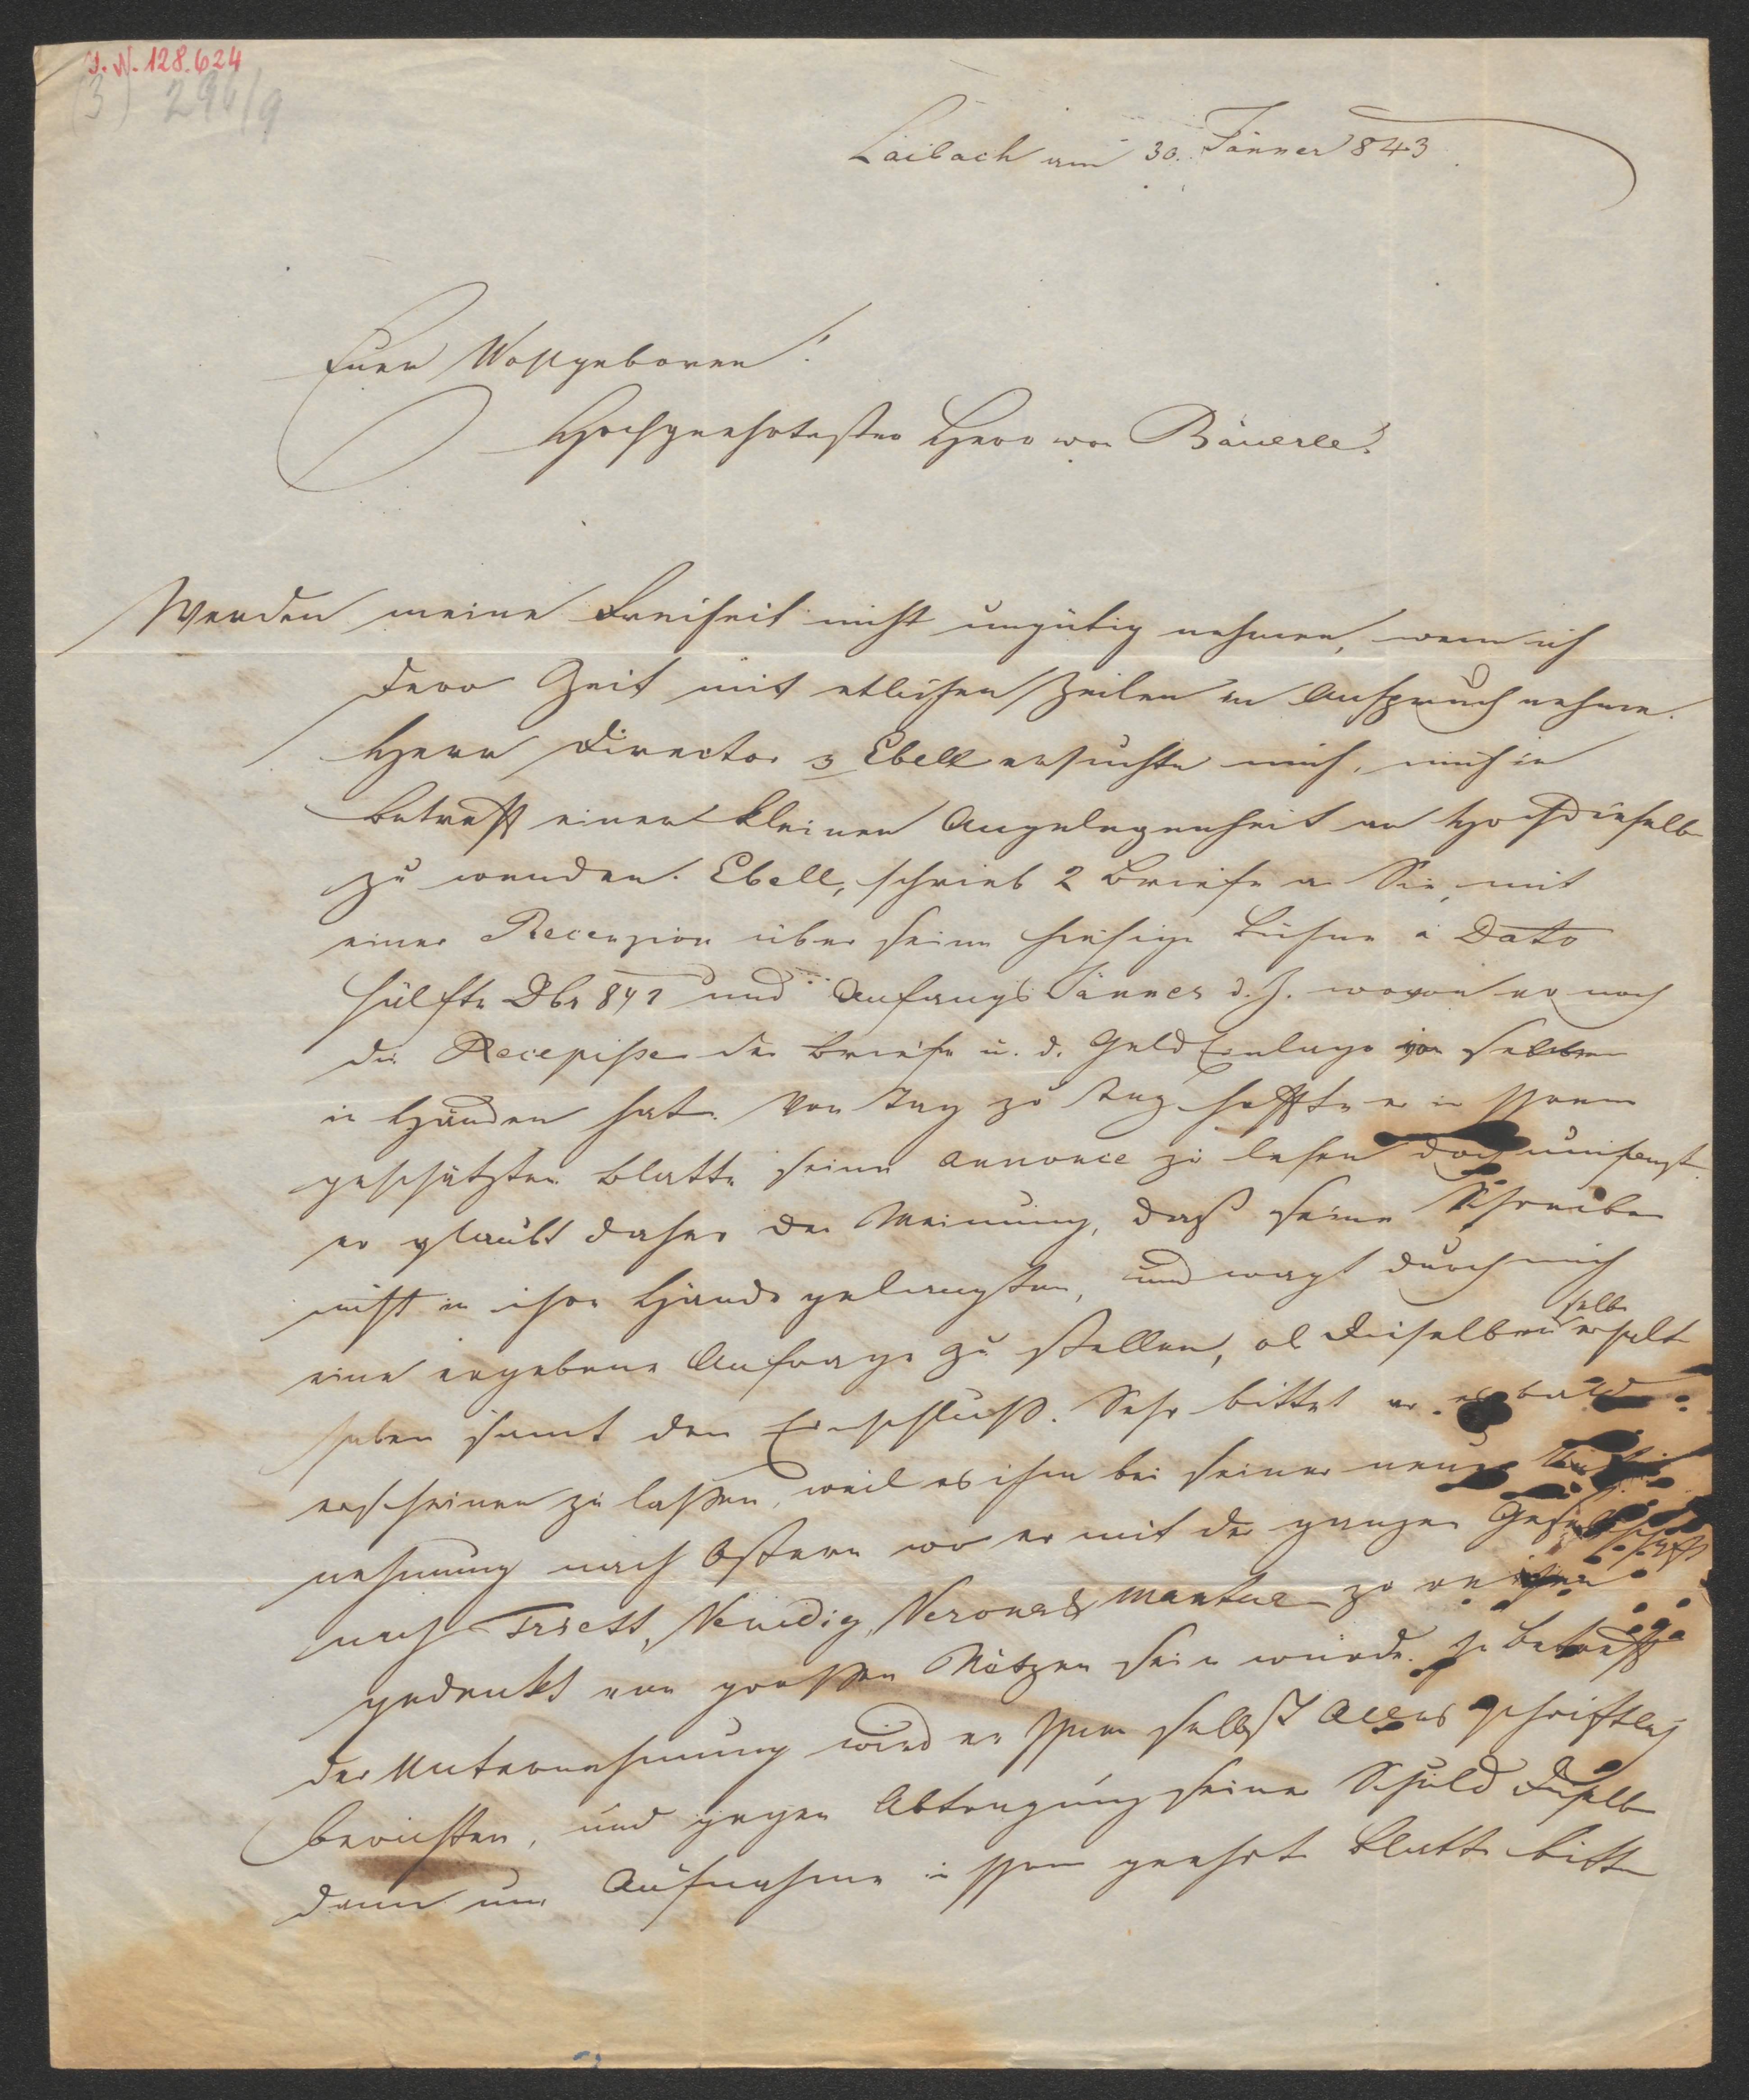 I. N. 128.624
(3) 296/9
Laibach am 30. Jänner 843
Euer Wohlgeboren!
Hochgeehrtester Herr von Bäuerle!
Werden meine Freiheit nicht ungütig nehmen, wenn ich
dero Zeit mit etlichen Zeilen in Anspruch nehme.
Herr Director Ebell ersuchte mich, mich in
Betreff einer kleinen Angelegenheit an Hochdieselb
zu wenden. Ebell, schrieb 2 Briefe an Sie, mit
einer Recension über seine hiesige Bühne à Dato
Hälfte Dbr 842 und Anfangs Jänner d. J. wovon er noch
die Recepisse der Briefe u. d. Geld Einlage von selben
in Händen hat. Von Tag zu Tag hoffte er in Ihrem
geschätzten Blatte seine Annonce zu lesen doch umsonst.
er glaubt daher der Meinung, daß seine Schreiben
nicht in ihre Hände gelangten, und wagt durch mich
eine ergebene Anfrage zu stellen, ob Dieselben selbe erhalt
haben samt den Einschluß. Sehr bittet er es bald
erscheinen zu lassen, weil es ihm bei seiner neuen Unter
nehmung nach Ostern wo er mit der ganzen Gesellschaft
nach Triest, Venedig, Verona & Mantua zu reisen
gedenkt von großen Nutzen sein würde. In Betreff
der Unternehmung wird er Ihnen selbst Alles schriftlich
berichten, und gegen Abtragung seiner Schuld Dieselb
dann um Aufnahme in Ihr geehrt Blatt bitte